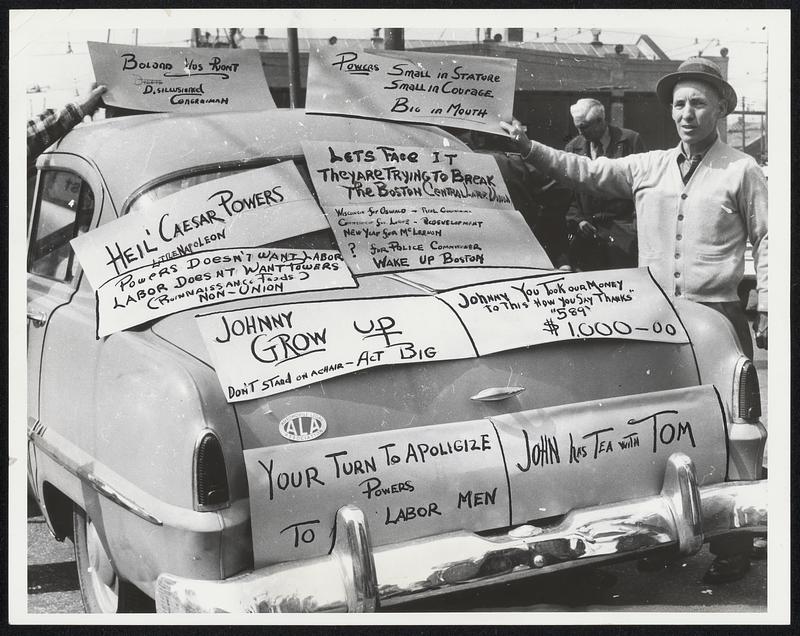 BOLAND VOS RUONT
DISILLUSIONED
CONGRAIMAN
POWERS SMALL IN STATURE
SMALL IN COURAGE
BIG IN MOUTH
LETS FACE IT
THEY ARE TRYING TO BREAK
THE BOSTON CENTRAL LABOR UNION
NEW YEAR FOR MCLERNON
? FOR POLICE COMMISSIONER
WAKE UP BOSTON
HEIL' CAESAR POWERS
LITTLE NAPOLEON
POWERS DOESN'T WANT LABOR
LABOR DOESNT WANT POWERS
(RUINNAISSANCE FOODS)
NON-UNION
JOHNNY
GROW UP
DON'T STAND ON A CHAIR - ACT BIG
JOHNNY YOU TOOK OUR MONEY
TO THIS HOW YOU SAY THANKS"
"589"
$1,000-00
ALA
YOUR TURN TO APOLIGIZE
POWERS
TO LABOR MEN
JOHN HAS TEA WITH TOM